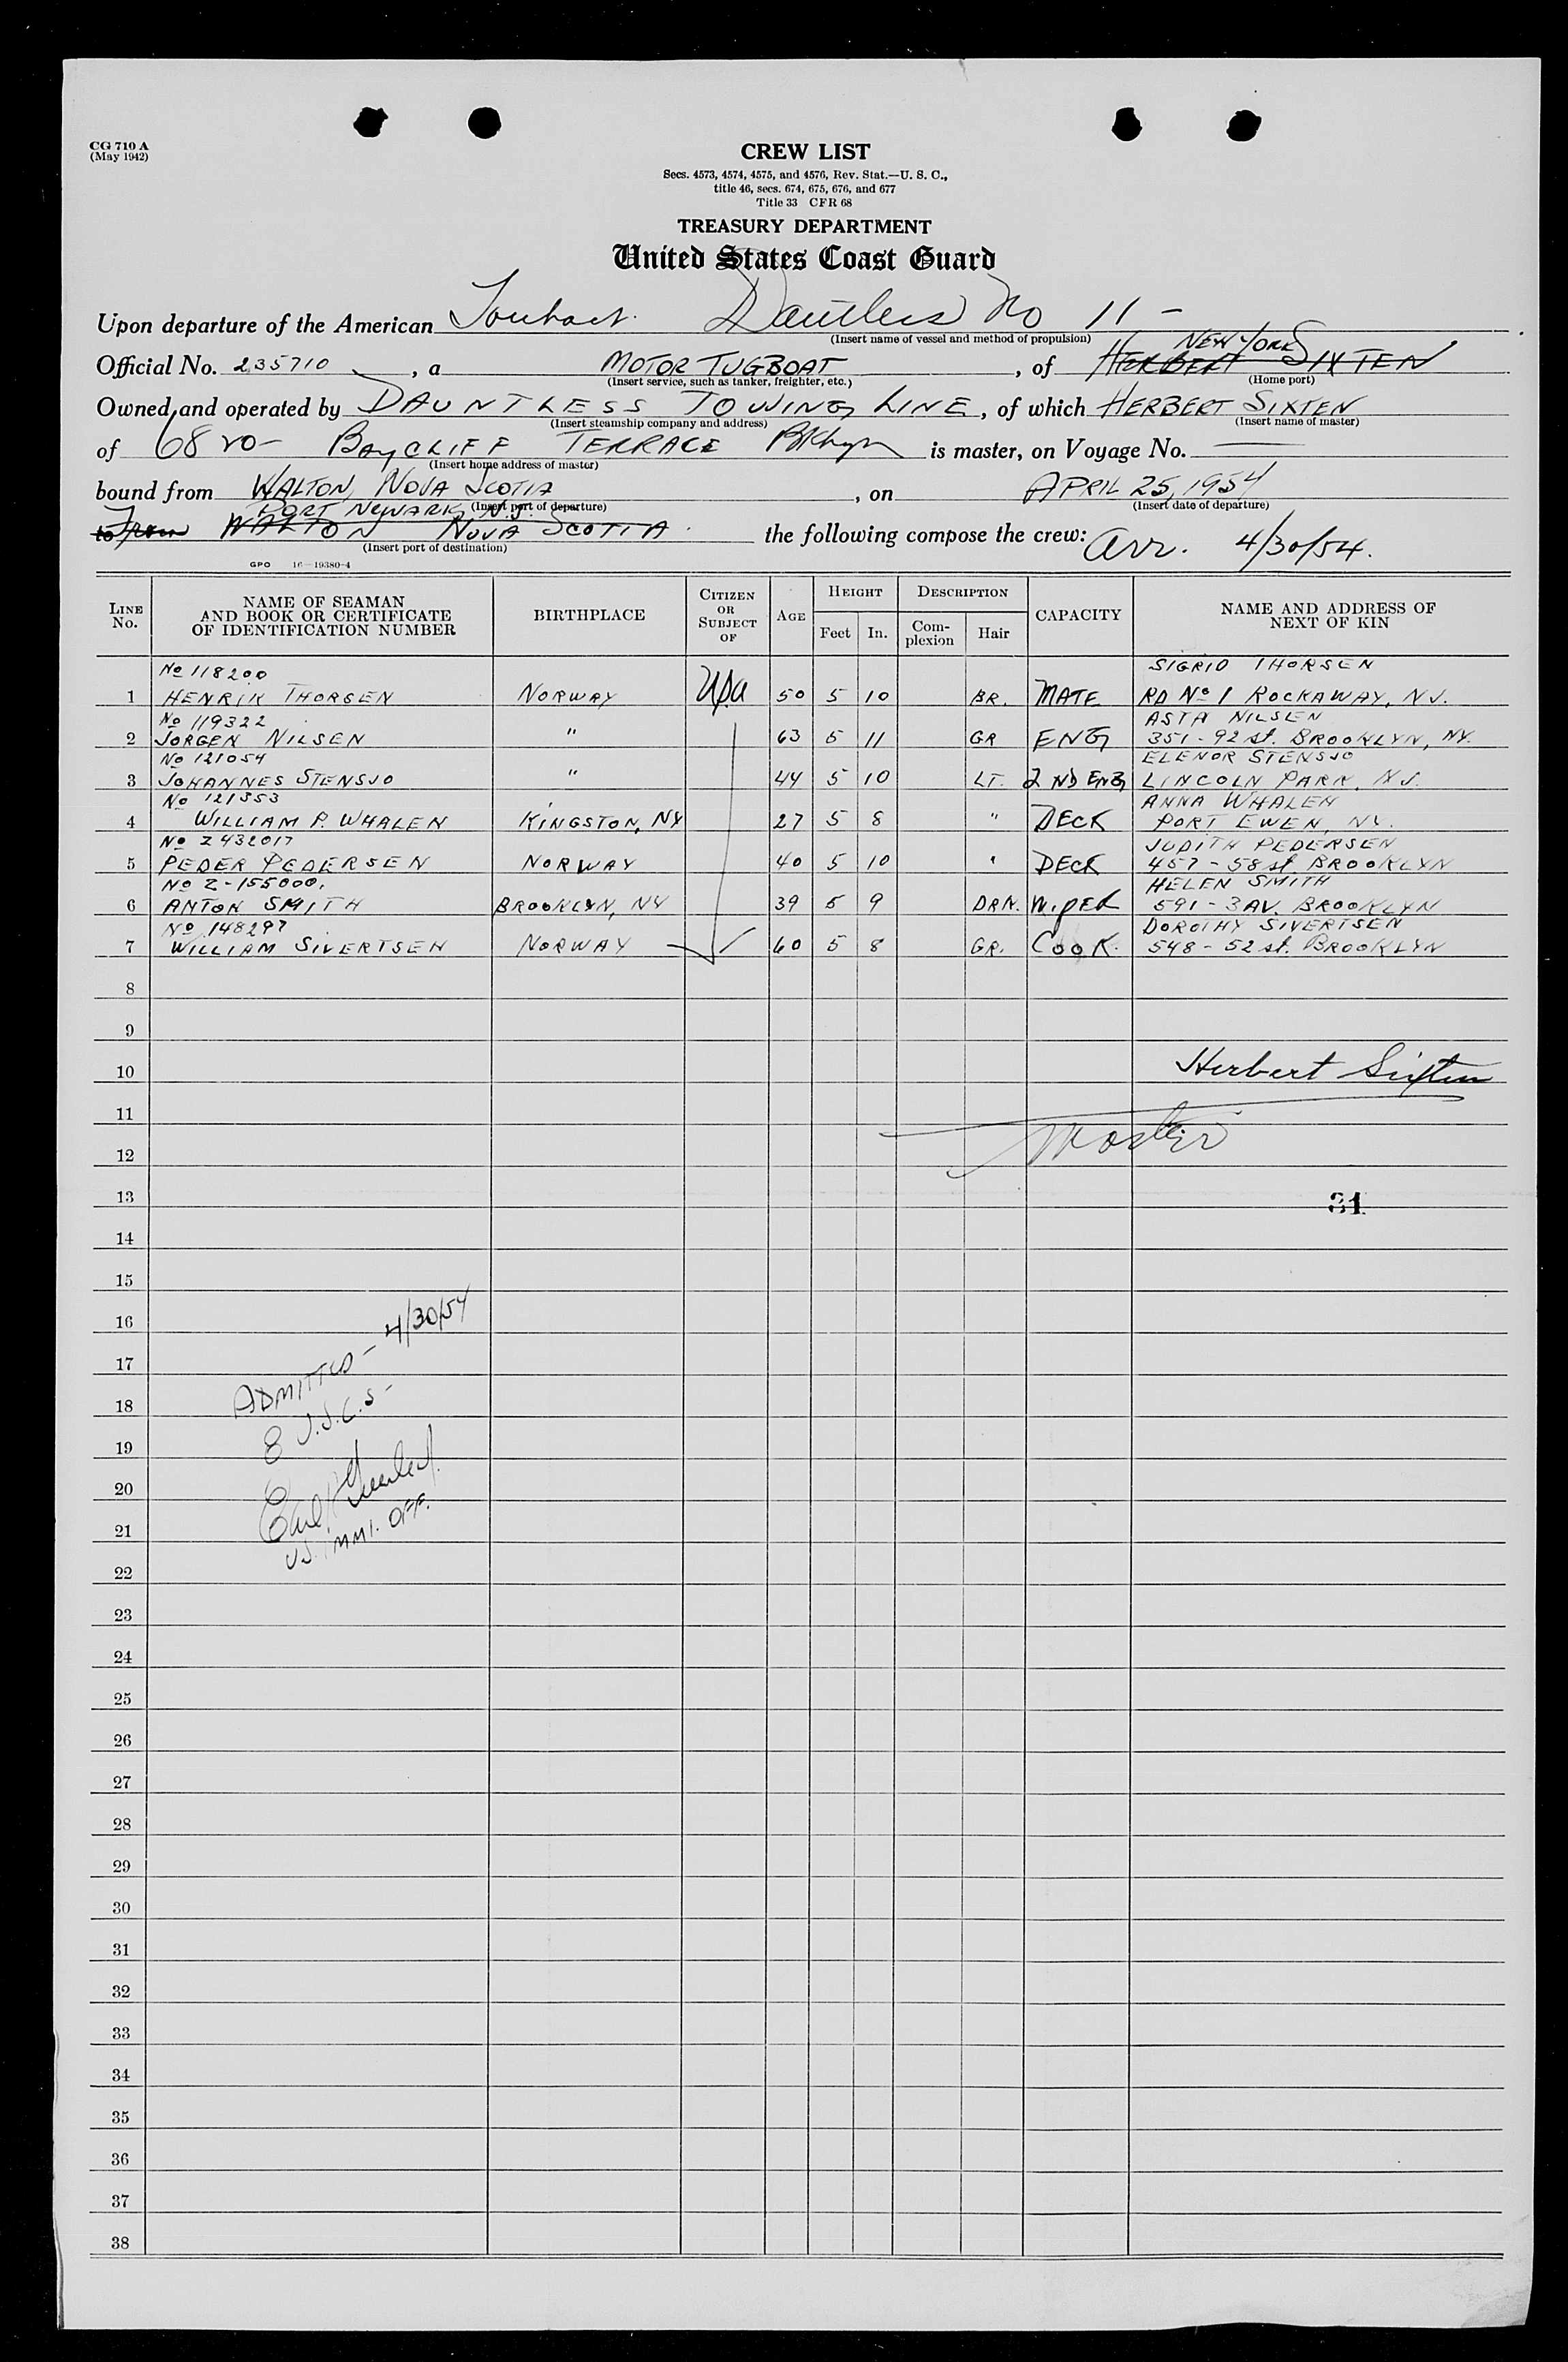 CG 710 A
(May 1942)
CREW LIST
Secs. 4573, 4574, 4575, and 4576, Rev. Stat.—U. S. C.,
title 46, secs. 674, 675, 676, and 677
Title 33 CFR 68
TREASURY DEPARTMENT
United States Coast Guard
Upon departure of the American Dauntless No 11 -
(Insert name of vessel and method of propulsion)
NEW YORK
Official No. 235710, a MOTOR TUGBOAT, of HERBERT SIXTEN
(Insert service, such as tanker, freighter, etc.) (Home port)
Owned and operated by DAUNTLESS TOWING LINE, of which HERBERT SIXTEN
(Insert steamship company and address) (Insert name of master)
of 6820- BAYCLIFF TERRACE Bklyn is master, on Voyage No.
(Insert home address of master)
bound from WALTON, NOVA SCOTIA, on APRIL 25, 1954
(Insert port of departure) (Insert date of departure)
PORT NEWARK, N.J.
to From WALTON NOVA SCOTIA. the following compose the crew: Arr. 4/30/54.
(Insert port of destination)
GPO 16—19380-4
LINE No. NAME OF SEAMAN AND BOOK OR CERTIFICATE OF IDENTIFICATION NUMBER BIRTHPLACE CITIZEN OR SUBJECT OF AGE HEIGHT Feet In. DESCRIPTION Complexion Hair CAPACITY NAME AND ADDRESS OF NEXT OF KIN
No 118200 SIGRID THORSEN
1 HENRIK THORSEN NORWAY USA 50 5 10 BR. MATE RD No 1 ROCKAWAY, N.J.
No 119322 ASTA NILSEN
2 JORGEN NILSEN " 63 5 11 GR ENG 351-92 st. BROOKLYN, NY.
No 121054 ELENOR STENSJO
3 JOHANNES STENSJO " 44 5 10 LT. 2ND ENG LINCOLN PARK, N.J.
No 121353 ANNA WHALEN
4 WILLIAM P. WHALEN KINGSTON, NY 27 5 8 " DECK PORT EWEN, NY.
No Z 432017 JUDITH PEDERSEN
5 PEDER PEDERSEN NORWAY 40 5 10 " DECK 457-58 st. BROOKLYN
No Z-155000. HELEN SMITH
6 ANTON SMITH BROOKLYN, NY 39 5 9 DRK. WIPER 591-3 AV. BROOKLYN
No 148297 DOROTHY SIVERTSEN
7 WILLIAM SIVERTSEN NORWAY 60 5 8 GR. COOK. 548-52 st. BROOKLYN
8
9
10 Herbert Sixten
11
Master
12
13
31
14
15
16
ADMITTED - 4/30/54
17
18
8 U.S.C.S -
19
20
21
U.S. IMMI. OFF.
22
23
24
25
26
27
28
29
30
31
32
33
34
35
36
37
38